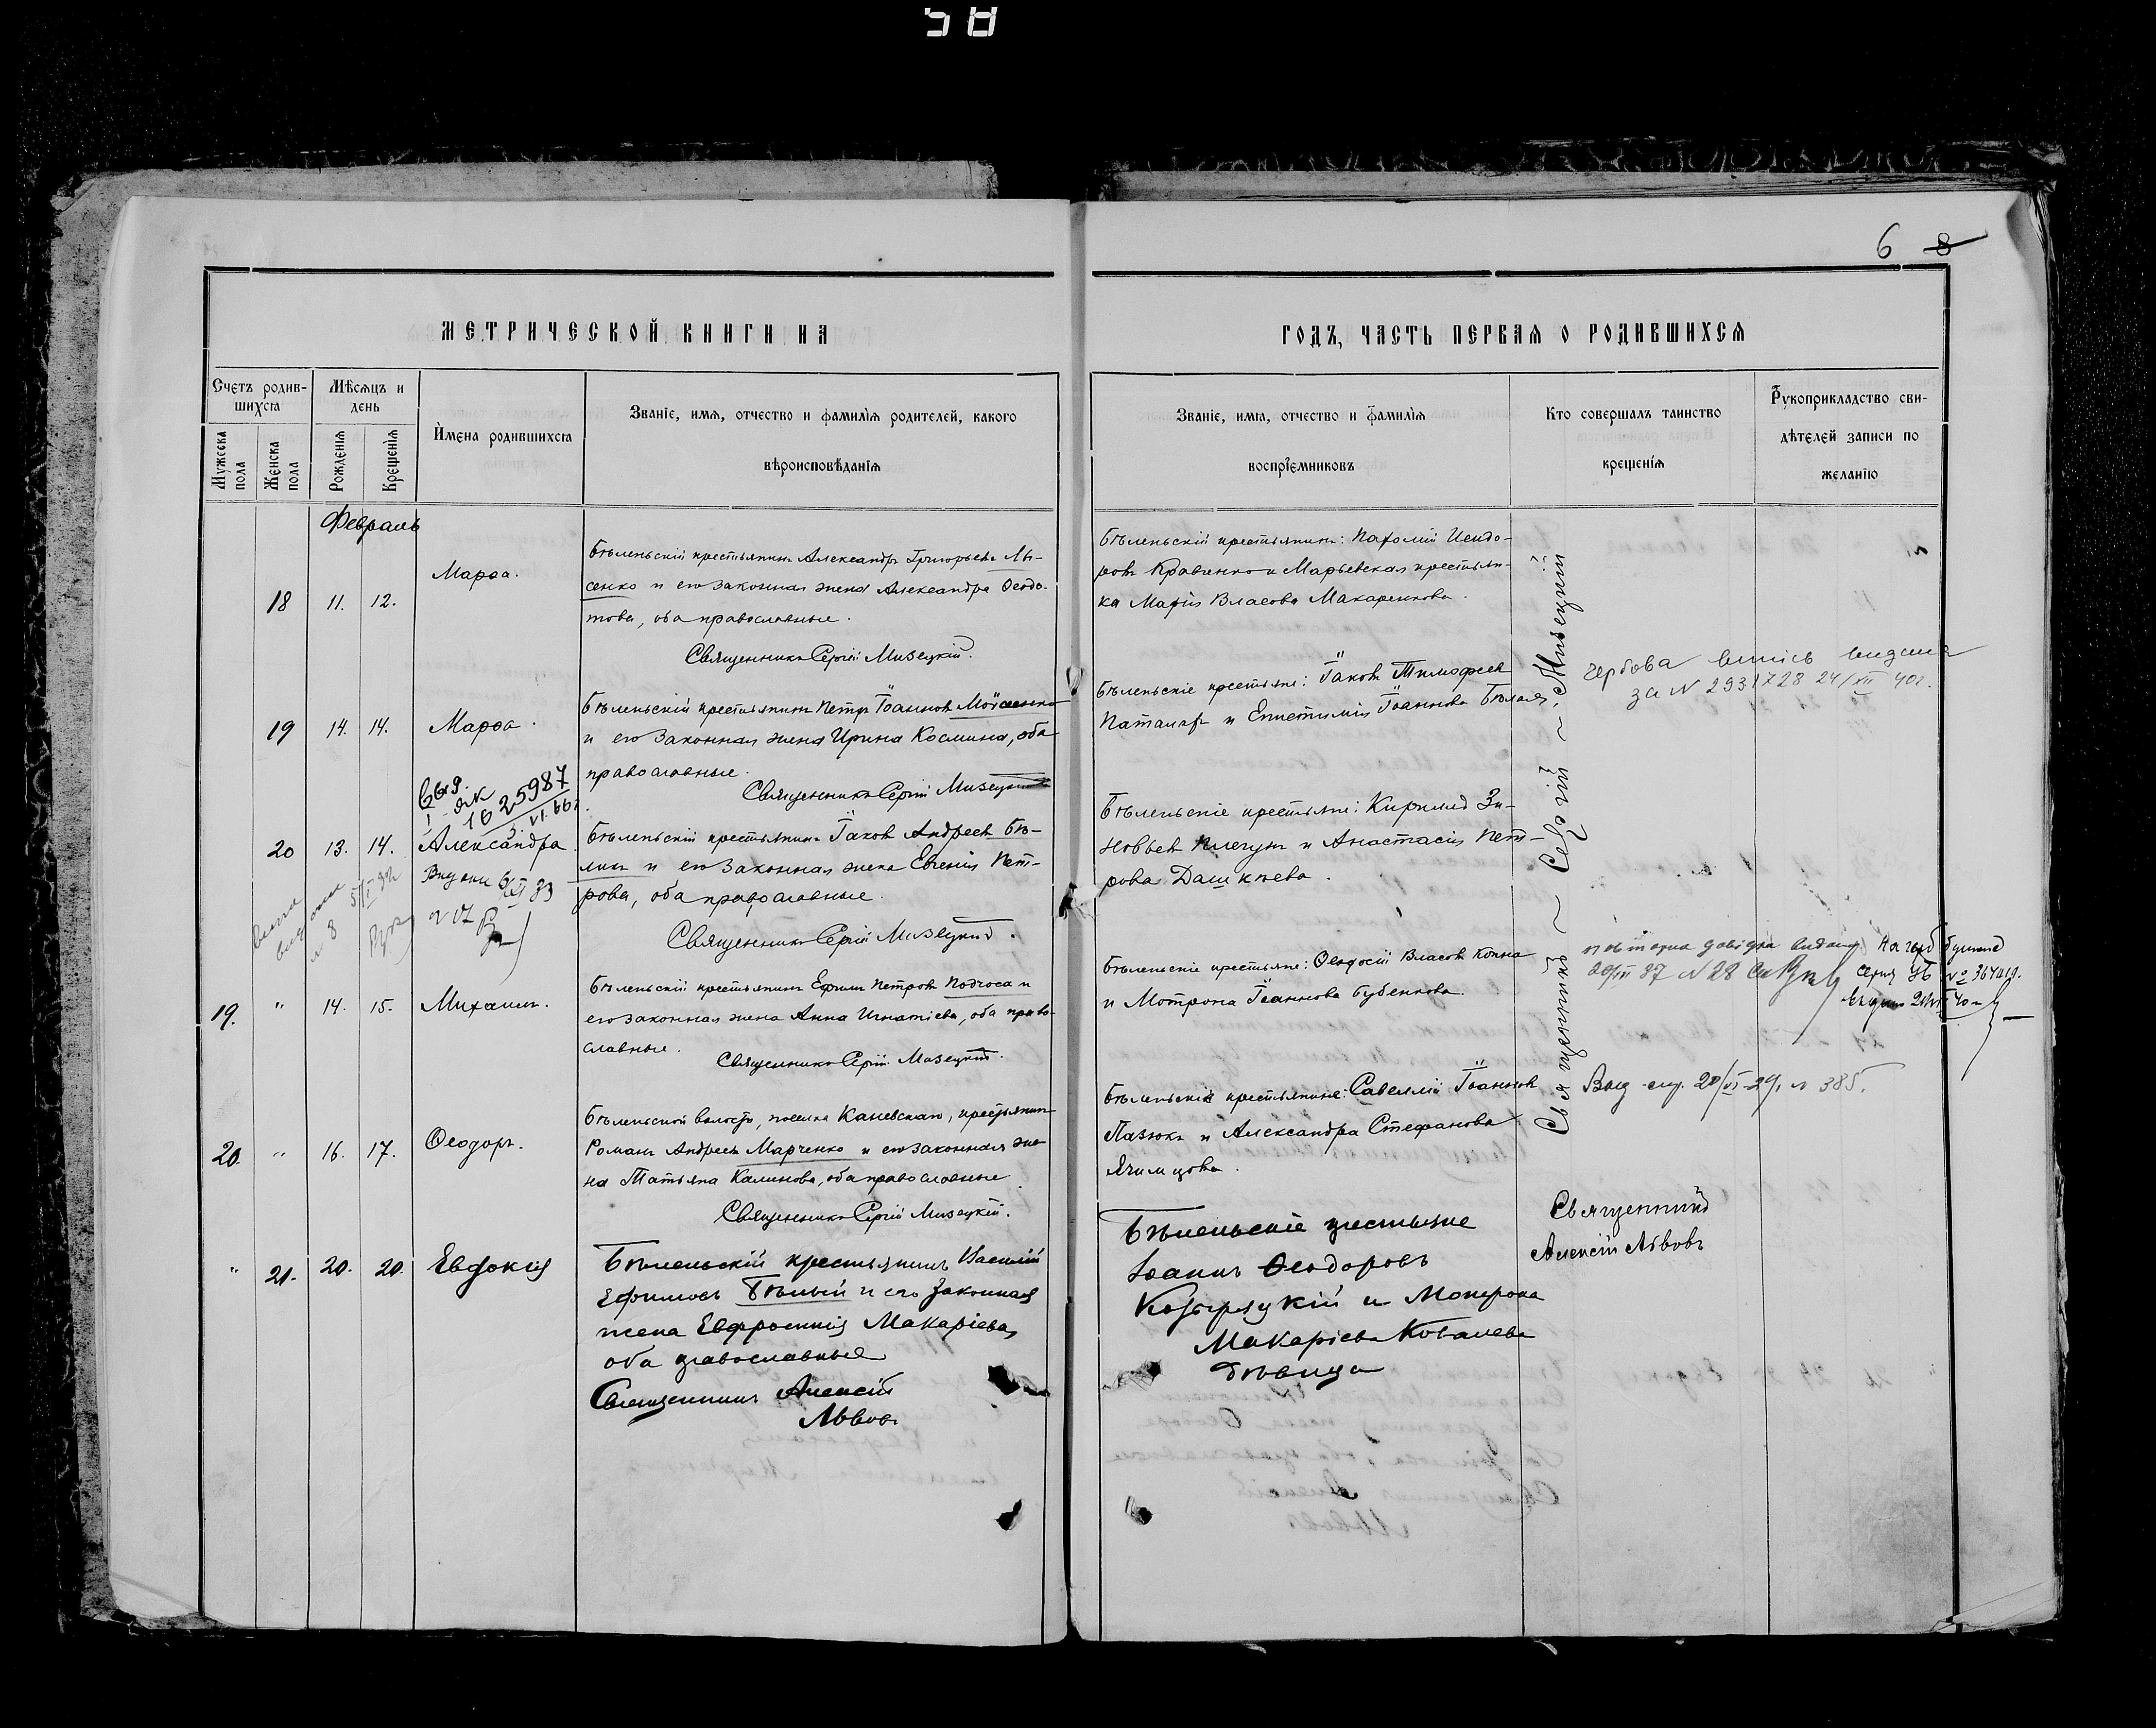 58
6 8
МЕТРИЧЕСКОЙ КНИГИ НА
ГОДЪ, ЧАСТЬ ПЕРВАЯ О РОДИВШИХСЯ
Счетъ родив-
шихся
Мѣсяцъ и
день
Имена родившихся
Званіе, имя, отчество и фамилія родителей, какого
вѣроисповѣданія
Мужеска пола
Женска пола
Рожденія
Крещенія
Званіе, имя, отчество и фамилія
воспріемниковъ
Кто совершалъ таинство
крещенія
Рукоприкладство сви-
дѣтелей записи по
желанію
Февраль
18 11. 12. Марѳа.
Бѣленьскій крестьянинъ Александръ Григорьевъ Лы-
сенко и его законная жена Александра Ѳеодо-
това, оба православные.
Священникъ Сергій Мизецкій.
Бѣленьскій крестьянинъ: Пафолій Исидо-
ровъ Кравченко и Марьевская крестьян-
ка Марія Власова Макаренкова.
19 14. 14. Марѳа.
Бѣленьскій крестьянинъ Петръ Іоанновъ Мойсеенко
и его законная жена Ирина Космина, оба
православные.
Священникъ Сергій Мизецкій
Бѣленьскіе крестьяне: Іаковъ Тимофеев
Паталахъ и Епистимія Іоаннова Бѣлая.
видана
за N 2931728 24/XII 40г.
25987
20 13. 14. Александра
Бѣленьскій крестьянинъ Іаковъ Андреевъ Бѣ-
ликъ и его законная жена Евгенія Пет-
рова, оба православные.
Священникъ Сергій Мизецкій.
Бѣленьскіе крестьяне: Кириллъ Зи-
новьевъ Плечунъ и Анастасія Пет-
рова Дашкѣева.
19. " 14. 15. Михаилъ.
Бѣленьскій крестьянинъ Ефимъ Петровъ Подчоса и
его законная жена Анна Игнатіева, оба право-
славные.
Священникъ Сергій Мизецкій.
Бѣленьскіе крестьяне: Ѳеодосій Власовъ Копка
и Мотрона Іоаннова Бубенкова.
N 28
N° 364019.
20. " 16. 17. Ѳеодоръ.
Бѣленьской волости, поселка Каневскаго, крестьянинъ
Романъ Андреевъ Марченко и его законная же-
на Татьяна Калинова, оба православные
Священникъ Сергій Мизецкій.
Бѣленьскія крестьяне: Савелій Іоанновъ
Пазюкъ и Александра Стефанова
Ячимцова.
N 385.
Священникъ ~ Сергій ~ Мизецкій
" 21. 20. 20. Евдокія
Бѣленьскій крестьянинъ Василій
Ефимовъ Бѣлый и его законная
жена Евфросинія Макаріева,
оба православные
Священникъ Алексій
Львовъ
Бѣленьскіе крестьяне
Іоаннъ Ѳеодоровъ
Козырзукій и Мотрона
Макаріева Ковалева
дѣвица
Священникъ
Алексій Львовъ